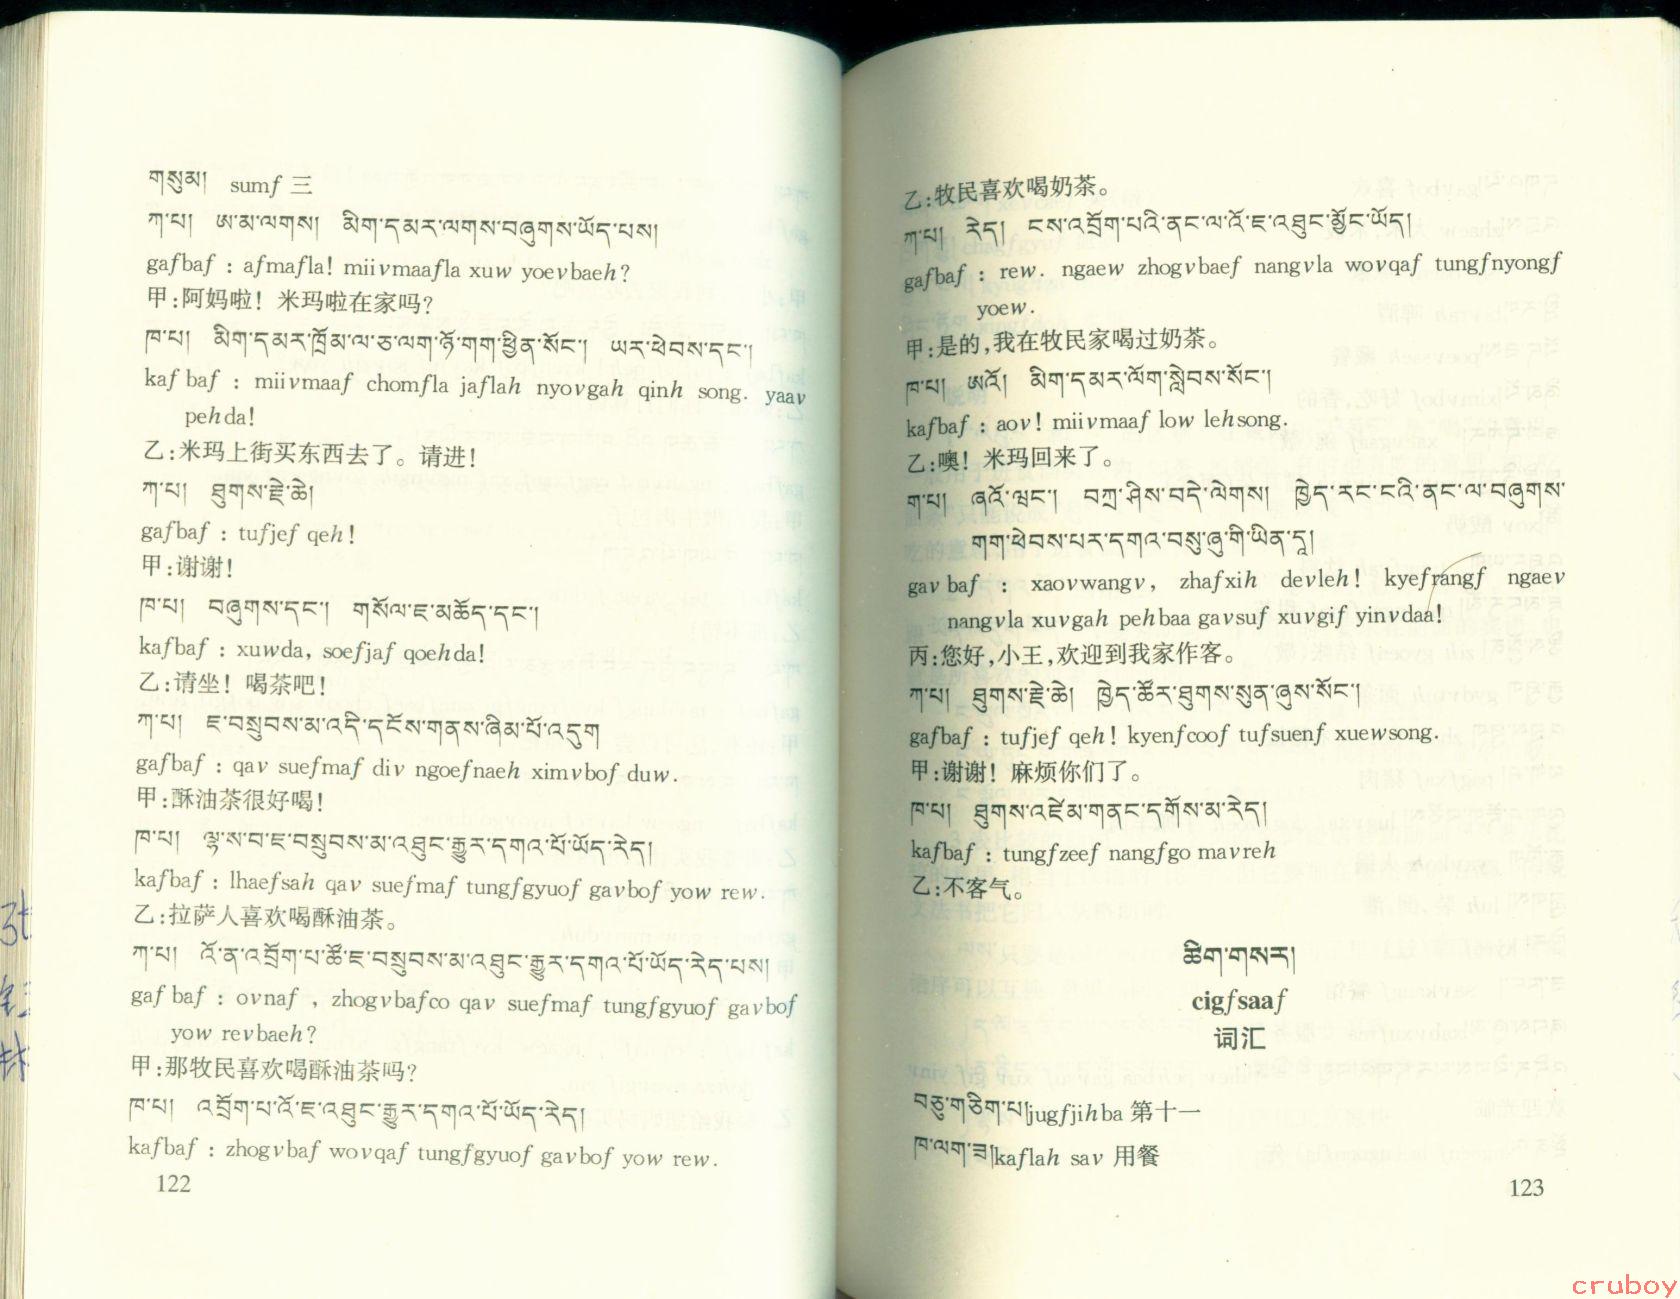 གསུམ། sumf 三
ཀ་པ། ཨ་མ་ལགས། མིག་དམར་ལགས་བཞུགས་ཡོད་པས།
gafbaf : afmafla! miivmaafla xuw yoevbaeh?
甲:阿妈啦! 米玛啦在家吗?
ཁ་པ། མིག་དམར་ཁྲོམ་ལ་ཅ་ལག་ཉོ་གག་ཕྱིན་སོང་། ཡར་ཕེབས་དང་།
kaf baf : miivmaaf chomfla jaflah nyovgah qinh song. yaav
pehda!
乙:米玛上街买东西去了。请进!
ཀ་པ། ཐུགས་རྗེ་ཆེ།
gafbaf : tufjef qeh!
甲:谢谢!
ཁ་པ། བཞུགས་དང་། གསོལ་ཇ་མཆོད་དང་།
kafbaf : xuwda, soefjaf qoehda!
乙:请坐! 喝茶吧!
ཀ་པ། ཇ་བསྲུབས་མ་འདི་དངོས་གནས་ཞིམ་པོ་འདུག
gafbaf : qav suefmaf div ngoefnaeh ximvbof duw.
甲:酥油茶很好喝!
ཁ་པ། ལྷ་ས་བ་ཇ་བསྲུབས་མ་འཐུང་རྒྱུར་དགའ་པོ་ཡོད་རེད།
kafbaf : lhaefsah qav suefmaf tungfgyuof gavbof yow rew.
乙:拉萨人喜欢喝酥油茶。
ཀ་པ། འོ་ན་འབྲོག་པ་ཚོ་ཇ་བསྲུབས་མ་འཐུང་རྒྱུར་དགའ་པོ་ཡོད་རེད་པས།
gaf baf : ovnaf , zhogvbafco qav suefmaf tungfgyuof gavbof
yow revbaeh?
甲:那牧民喜欢喝酥油茶吗?
ཁ་པ། འབྲོག་པ་འོ་ཇ་འཐུང་རྒྱུར་དགའ་པོ་ཡོད་རེད།
kafbaf : zhogvbaf wovqaf tungfgyuof gavbof yow rew.
122
乙:牧民喜欢喝奶茶。
ཀ་པ། རེད། ངས་འབྲོག་པའི་ནང་ལ་འོ་ཇ་འཐུང་མྱོང་ཡོད།
gafbaf : rew. ngaew zhogvbaef nangvla wovqaf tungfnyongf
yoew.
甲:是的,我在牧民家喝过奶茶。
ཁ་པ། ཨའོ། མིག་དམར་ལོག་སླེབས་སོང་།
kafbaf : aov! miivmaaf low lehsong.
乙:噢! 米玛回来了。
ག་པ། ཞའོ་ཝང་། བཀྲ་ཤིས་བདེ་ལེགས། ཁྱེད་རང་ངའི་ནང་ལ་བཞུགས་
གག་ཕེབས་པར་དགའ་བསུ་ཞུ་གི་ཡིན་དཱ།
gav baf : xaovwangv, zhafxih devleh! kyefrangf ngaev
nangvla xuvgah pehbaa gavsuf xuvgif yinvdaa!
丙:您好,小王,欢迎到我家作客。
ཀ་པ། ཐུགས་རྗེ་ཆེ། ཁྱེད་ཚོར་ཐུགས་སུན་ཞུས་སོང་།
gafbaf : tufjef qeh! kyenfcoof tufsuenf xuewsong.
甲:谢谢! 麻烦你们了。
ཁ་པ། ཐུགས་འཛེམ་གནང་དགོས་མ་རེད།
kafbaf : tungfzeef nangfgo mavreh
乙:不客气。
ཚིག་གསར།
cigfsaaf
词汇
བཅུ་གཅིག་པ།jugfjihba 第十一
ཁ་ལག་ཟ།kaflah sav 用餐
123
cruboy